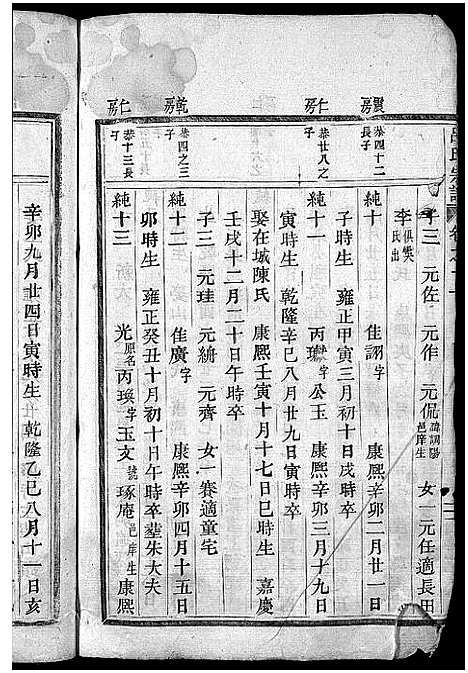 震房
恭四十二長子
仁房
恭廿八之子
乾房
恭四之三子
仁房
恭十三長子
氏宗譜
子三 元佐 元作 元侃 諱調陽邑庠生 女一元任適長田
李氏俱出
純十 佳詡字 康熙辛卯二月廿一日
子時生 雍正甲寅三月初十日戌時卒
純十一 丙字公玉 康熙辛卯三月十九日
寅時生 乾隆辛巳八月廿九日寅時卒
娶在城陳氏 康熙壬寅十月十七日巳時生 嘉慶
壬戌十二月二十日午時卒
子三 元珪 元綺 元齊 女一賽適童宅
純十二 佳廣字 康熙辛卯四月十五日
卯時生 雍正癸丑十月初十日午時卒塟朱大夫
純十三 光原名丙瑛字玉文號琢庵邑庠生康熙
辛卯九月廿四日寅時生 卒乾隆乙巳八月十一日亥